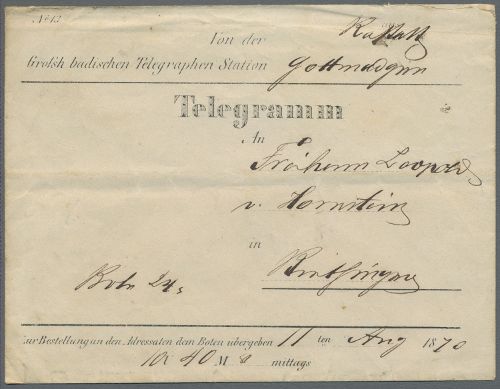 No 13.
Rastatt
Von der
Großh badischen Telegraphen Station Gottmadgen
Telegramm
An
Freiherrn Leopold
v. Hornstein
in
Binthingen
Botn 24
zur Bestellung an den Adressaten dem Boten übergeben 11 ten Aug 1870
10 U 40 M mittags